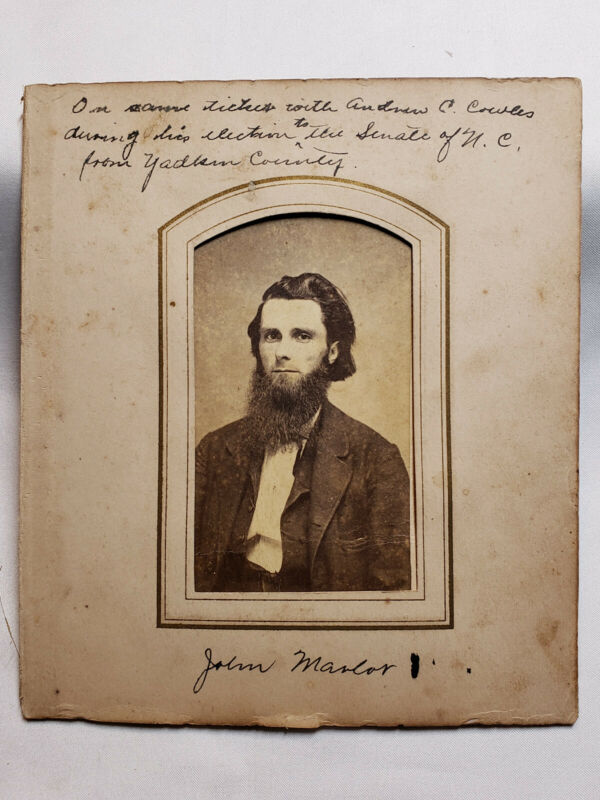 On same ticket with Andrew C. Cowles
during his election to the Senate of N. C.
from Yadkin County.
John Marlor